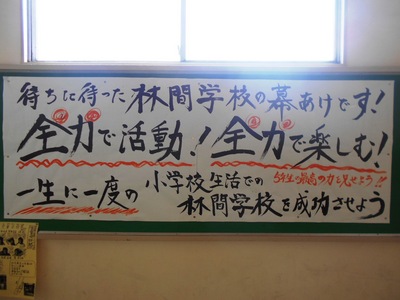 待ちに待った林間学校の幕あけです!
全力で活動! 全力で楽しむ!
5年生の最高の力を見せよう!!
一生に一度の小学校生活での
林間学校を成功させよう